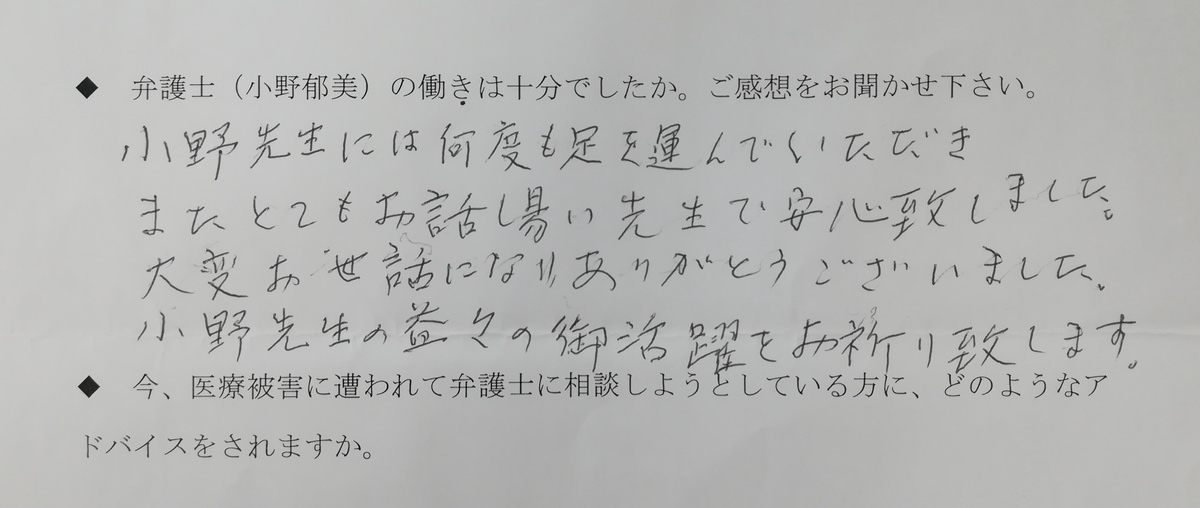 ◆　弁護士（小野郁美）の働きは十分でしたか。ご感想をお聞かせ下さい。
小野先生には何度も足を運んでいただき
またとてもお話し易い先生で安心致しました。
大変お世話になりありがとうございました。
小野先生の益々の御活躍をお祈り致します。
◆　今、医療被害に遭われて弁護士に相談しようとしている方に、どのようなア
ドバイスをされますか。